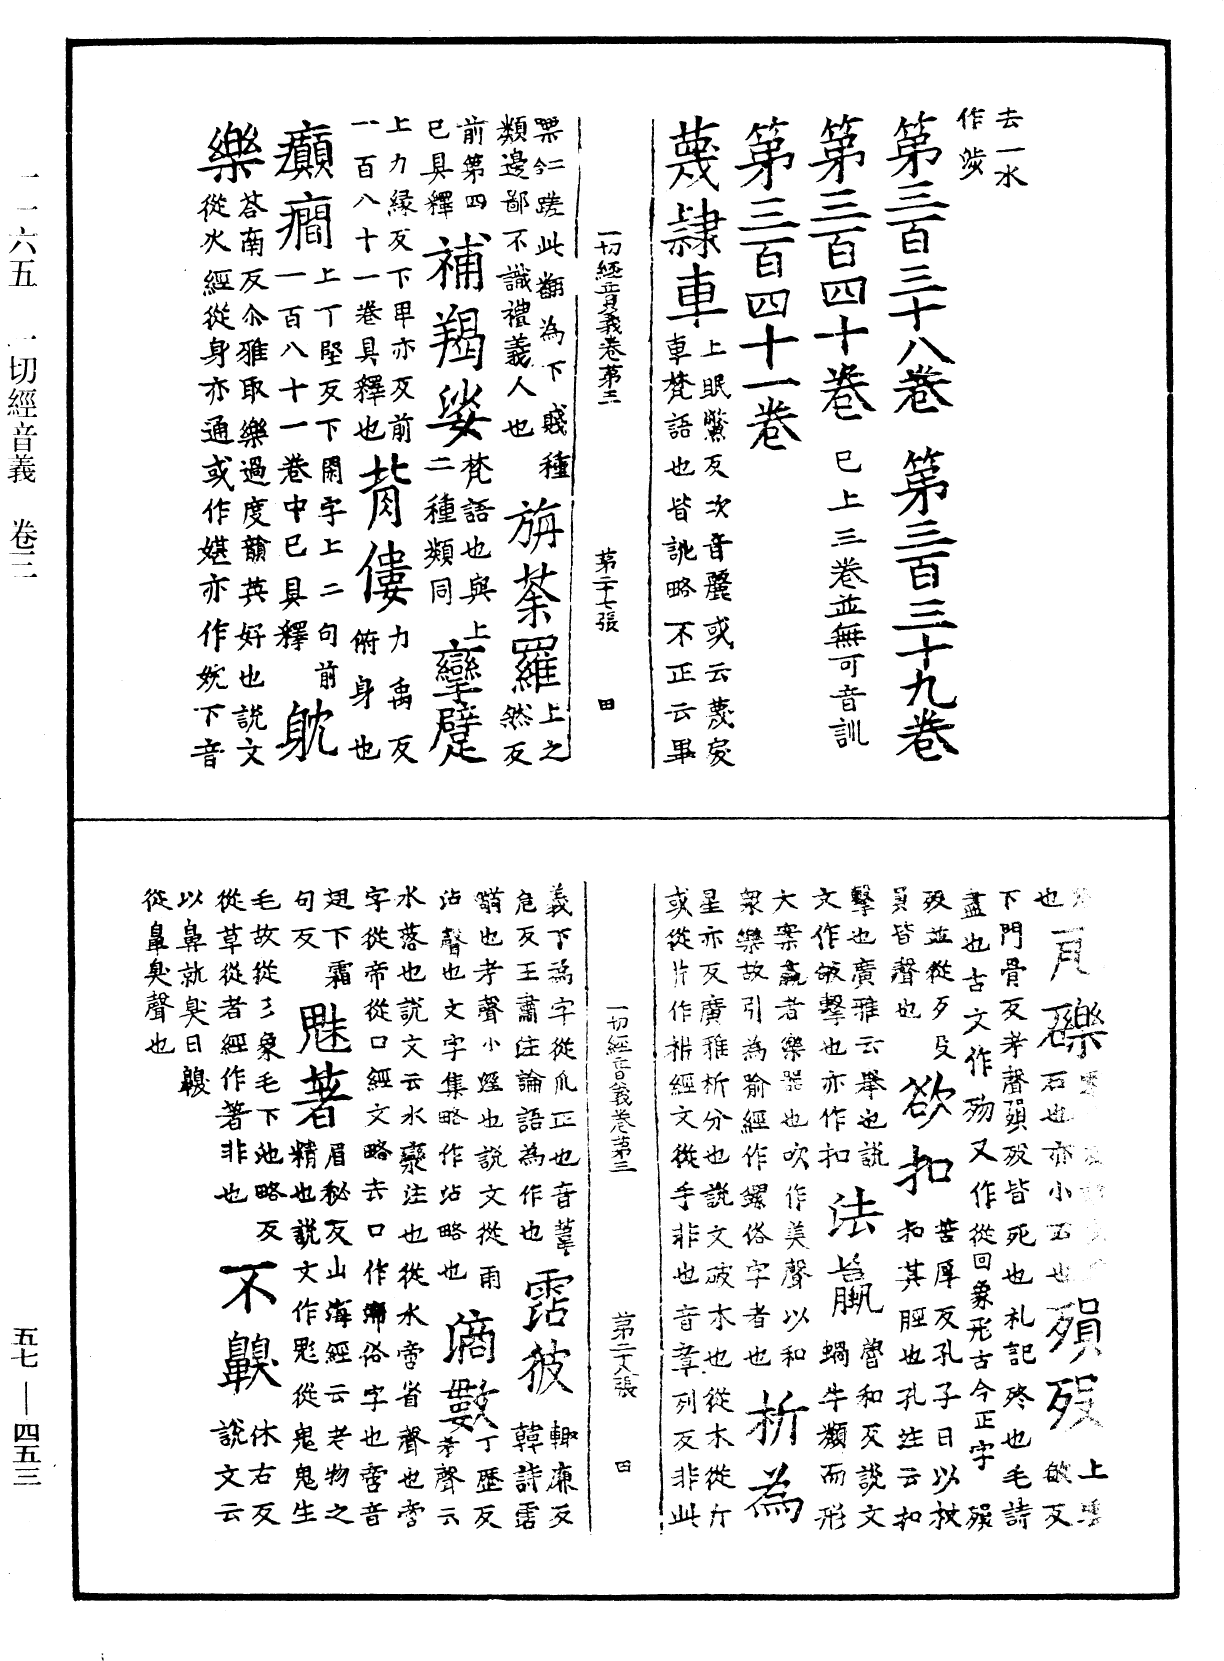 去一水
作㳄
第三百三十八卷　第三百三十九卷
第三百四十卷　已上三卷並無可音訓
第三百四十一卷
蔑隸車　上眠鷩反次音麗或云蔑戾
車梵語也皆訛略不正云畢
一切經音義卷第三　第二十七張　田
栗二合蹉此翻為下賤種
類邊鄙不識禮義人也
旃荼羅　上之
然反
前第四
已具釋
補羯娑　梵語也與上
二種類同
攣躄
上力緣反下甲亦反前
一百八十一卷具釋也
背僂　力禹反
俯身也
癲癇　上丁堅反下閑字上二句前
一百八十一卷中已具釋
躭
樂　荅南反尒雅取樂過度韻英好也說文
從火經從身亦通或作媅亦作妉下音
也
瓦礫
石也亦小石也
殞歿　上
敏反
下門骨反考聲殞歿皆死也礼記終也毛詩
盡也古文作歾又作從回象形古今正字殞
歿並從歹殳
員皆聲也
欲扣　苦厚反孔子曰以杖
扣其脛也孔注云扣
擊也廣雅云舉也說
文作敂擊也亦作扣
法蠃　魯和反說文
蝸牛類而形
大案蠃者樂器也吹作美聲以和
衆樂故引為喻經作螺俗字者也
析為
星亦反廣雅析分也說文破木也從木從斤
或從片作㸞經文從手非也音章列反非此
一切經音義卷第三　第二十八張　田
義下為字從爪正也音葦
危反王肅注論語為作也
霑彼　輒廉反
韓詩霑
溺也考聲小溼也說文從雨
沾聲也文字集略作沾略也
滴數　丁歷反
考聲云
水落也說文云水欒注也從水啻省聲也啻
字從帝從口經文略去口作渧俗字也啻音
翅下霜
句反
魅著　眉秘反山海經云老物之
精也說文作鬽從鬼鬼生
毛故從彡象毛下池略反
從草從者經作著非也
不齅　休右反
說文云
以鼻就臭曰齅
從鼻臭聲也
一一六五　一切經音義　卷三
五七—四五三